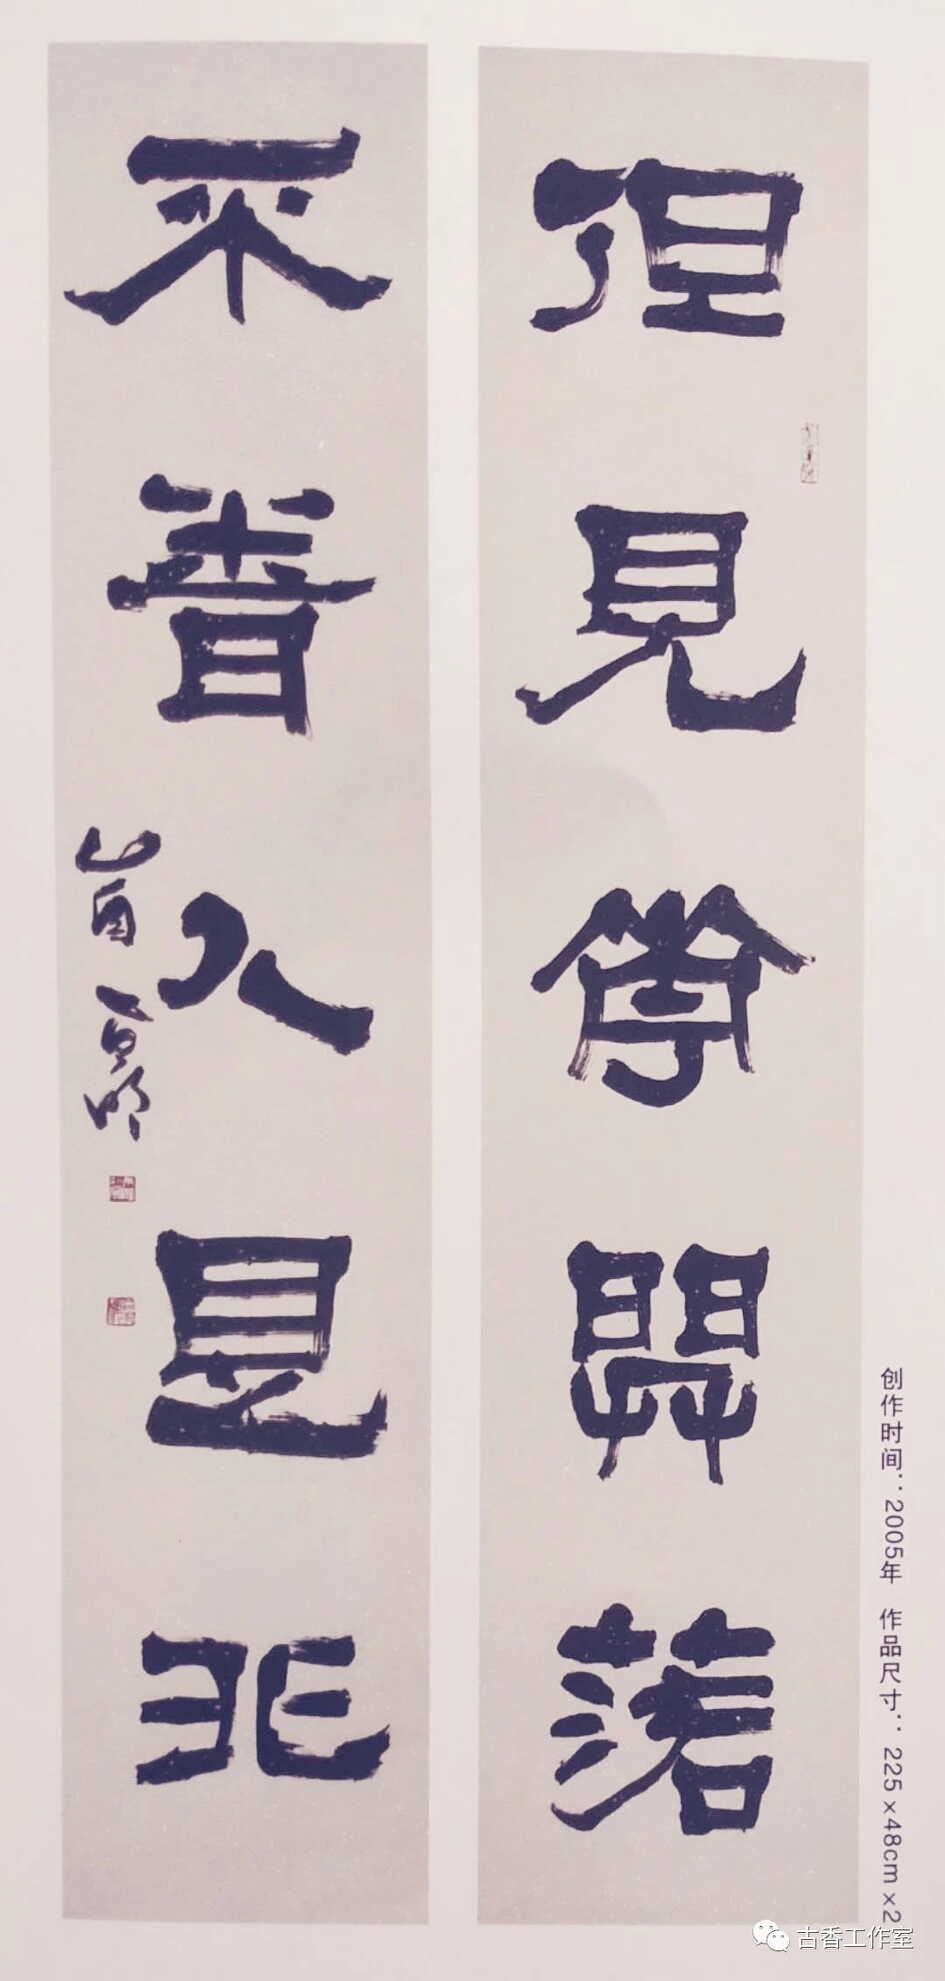 但見花開落
不言人是非
创作时间：2005年 作品尺寸：225×48cm×2
古香工作室